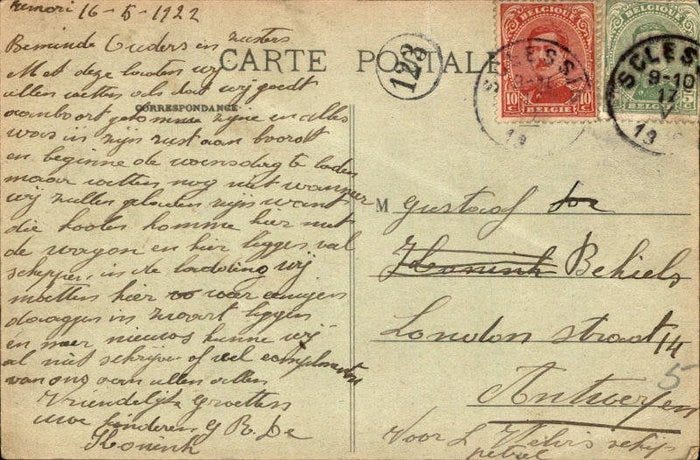 16-5-1922
Beminde Ouders en zusters
Met deze laeten wij
ulien weten als dat wij goedt
aanboort gekomme zijne en alles
was in zijn rust aan boordt
en beginne de woensdag te laden
maar wetten nog niet wanneer
wij zullen geladen zijn want
die koolen komme hier met
de wagon en hier liggen val
schepper in de ladeling wij
moetten hier voor eenigen
daagen in zwart liggen
en meer nieuws kunne wij
al niet schrijven of veel complementen
van ons aan ullen allen
Vriendelijke groetten
uwe kinderen G R. De
Konink
CARTE POSTALE
CORRESPONDANCE
123
BELGIQUE
10 C
BELGIE
BELGIQUE
BELGIE
SCLESSIN
9-10
17
V
19
M Gustaaf
Behiels
London straat 14
5
Antwerpen
Voor L schip